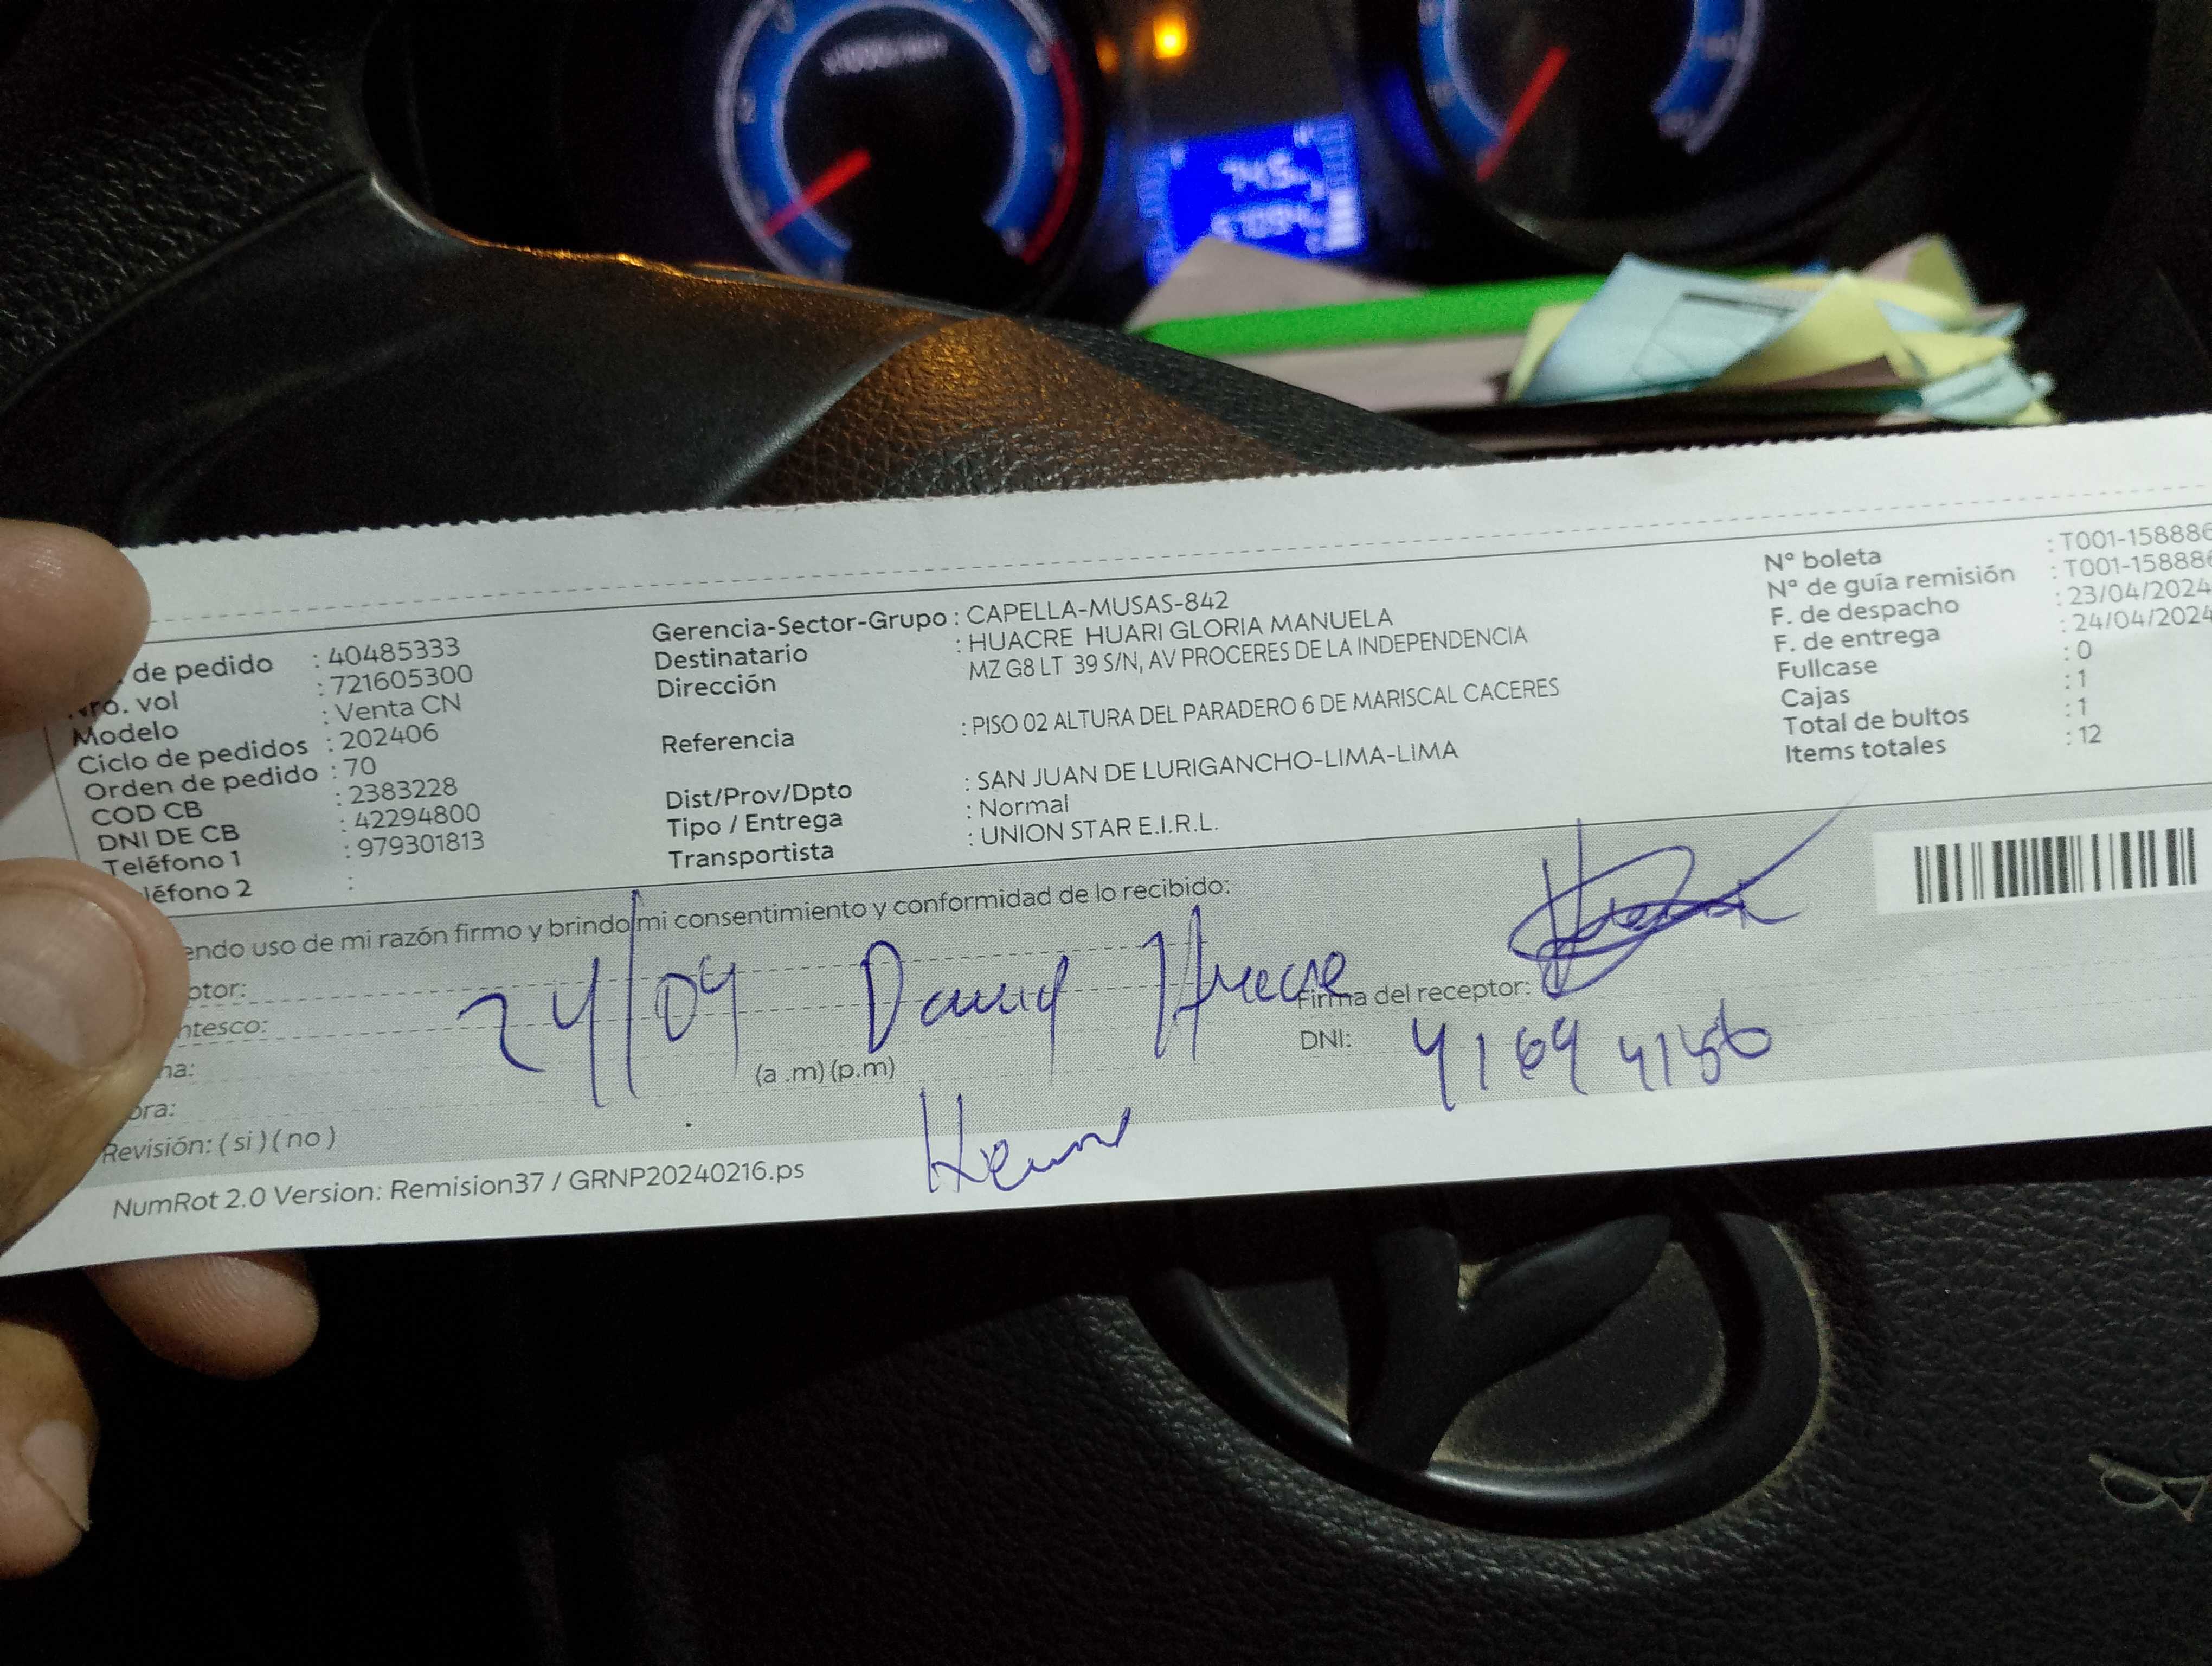 de pedido : 40485333
Nro. vol : 721605300
Modelo : Venta CN
Ciclo de pedidos : 202406
Orden de pedido : 70
COD CB : 2383228
DNI DE CB : 42294800
Teléfono 1 : 979301813
léfono 2 :
Gerencia-Sector-Grupo : CAPELLA-MUSAS-842
Destinatario : HUACRE HUARI GLORIA MANUELA
Dirección MZ G8 LT 39 S/N, AV PROCERES DE LA INDEPENDENCIA
Referencia : PISO 02 ALTURA DEL PARADERO 6 DE MARISCAL CACERES
Dist/Prov/Dpto : SAN JUAN DE LURIGANCHO-LIMA-LIMA
Tipo / Entrega : Normal
Transportista : UNION STAR E.I.R.L.
N° boleta : T001-158886
N° de guía remisión : T001-158886
F. de despacho : 23/04/2024
F. de entrega : 24/04/2024
Fullcase : 0
Cajas : 1
Total de bultos : 1
Items totales : 12
endo uso de mi razón firmo y brindo mi consentimiento y conformidad de lo recibido:
ptor:
ntesco:
24/04 David Huacre
Firma del receptor:
DNI: 41694156
ha:
ora: (a .m) (p.m)
Revisión: ( si ) ( no )
NumRot 2.0 Version: Remision37 / GRNP20240216.ps